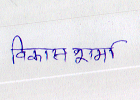 विकास शर्मा